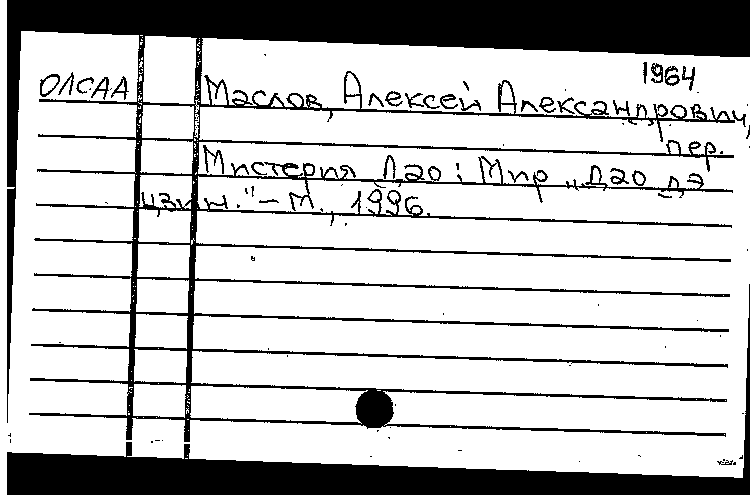 1964
ОЛСАА Маслов, Алексей Александрович,
пер.
Мистерия Дао: Мир „Дао дэ
цзин."-М., 1996.